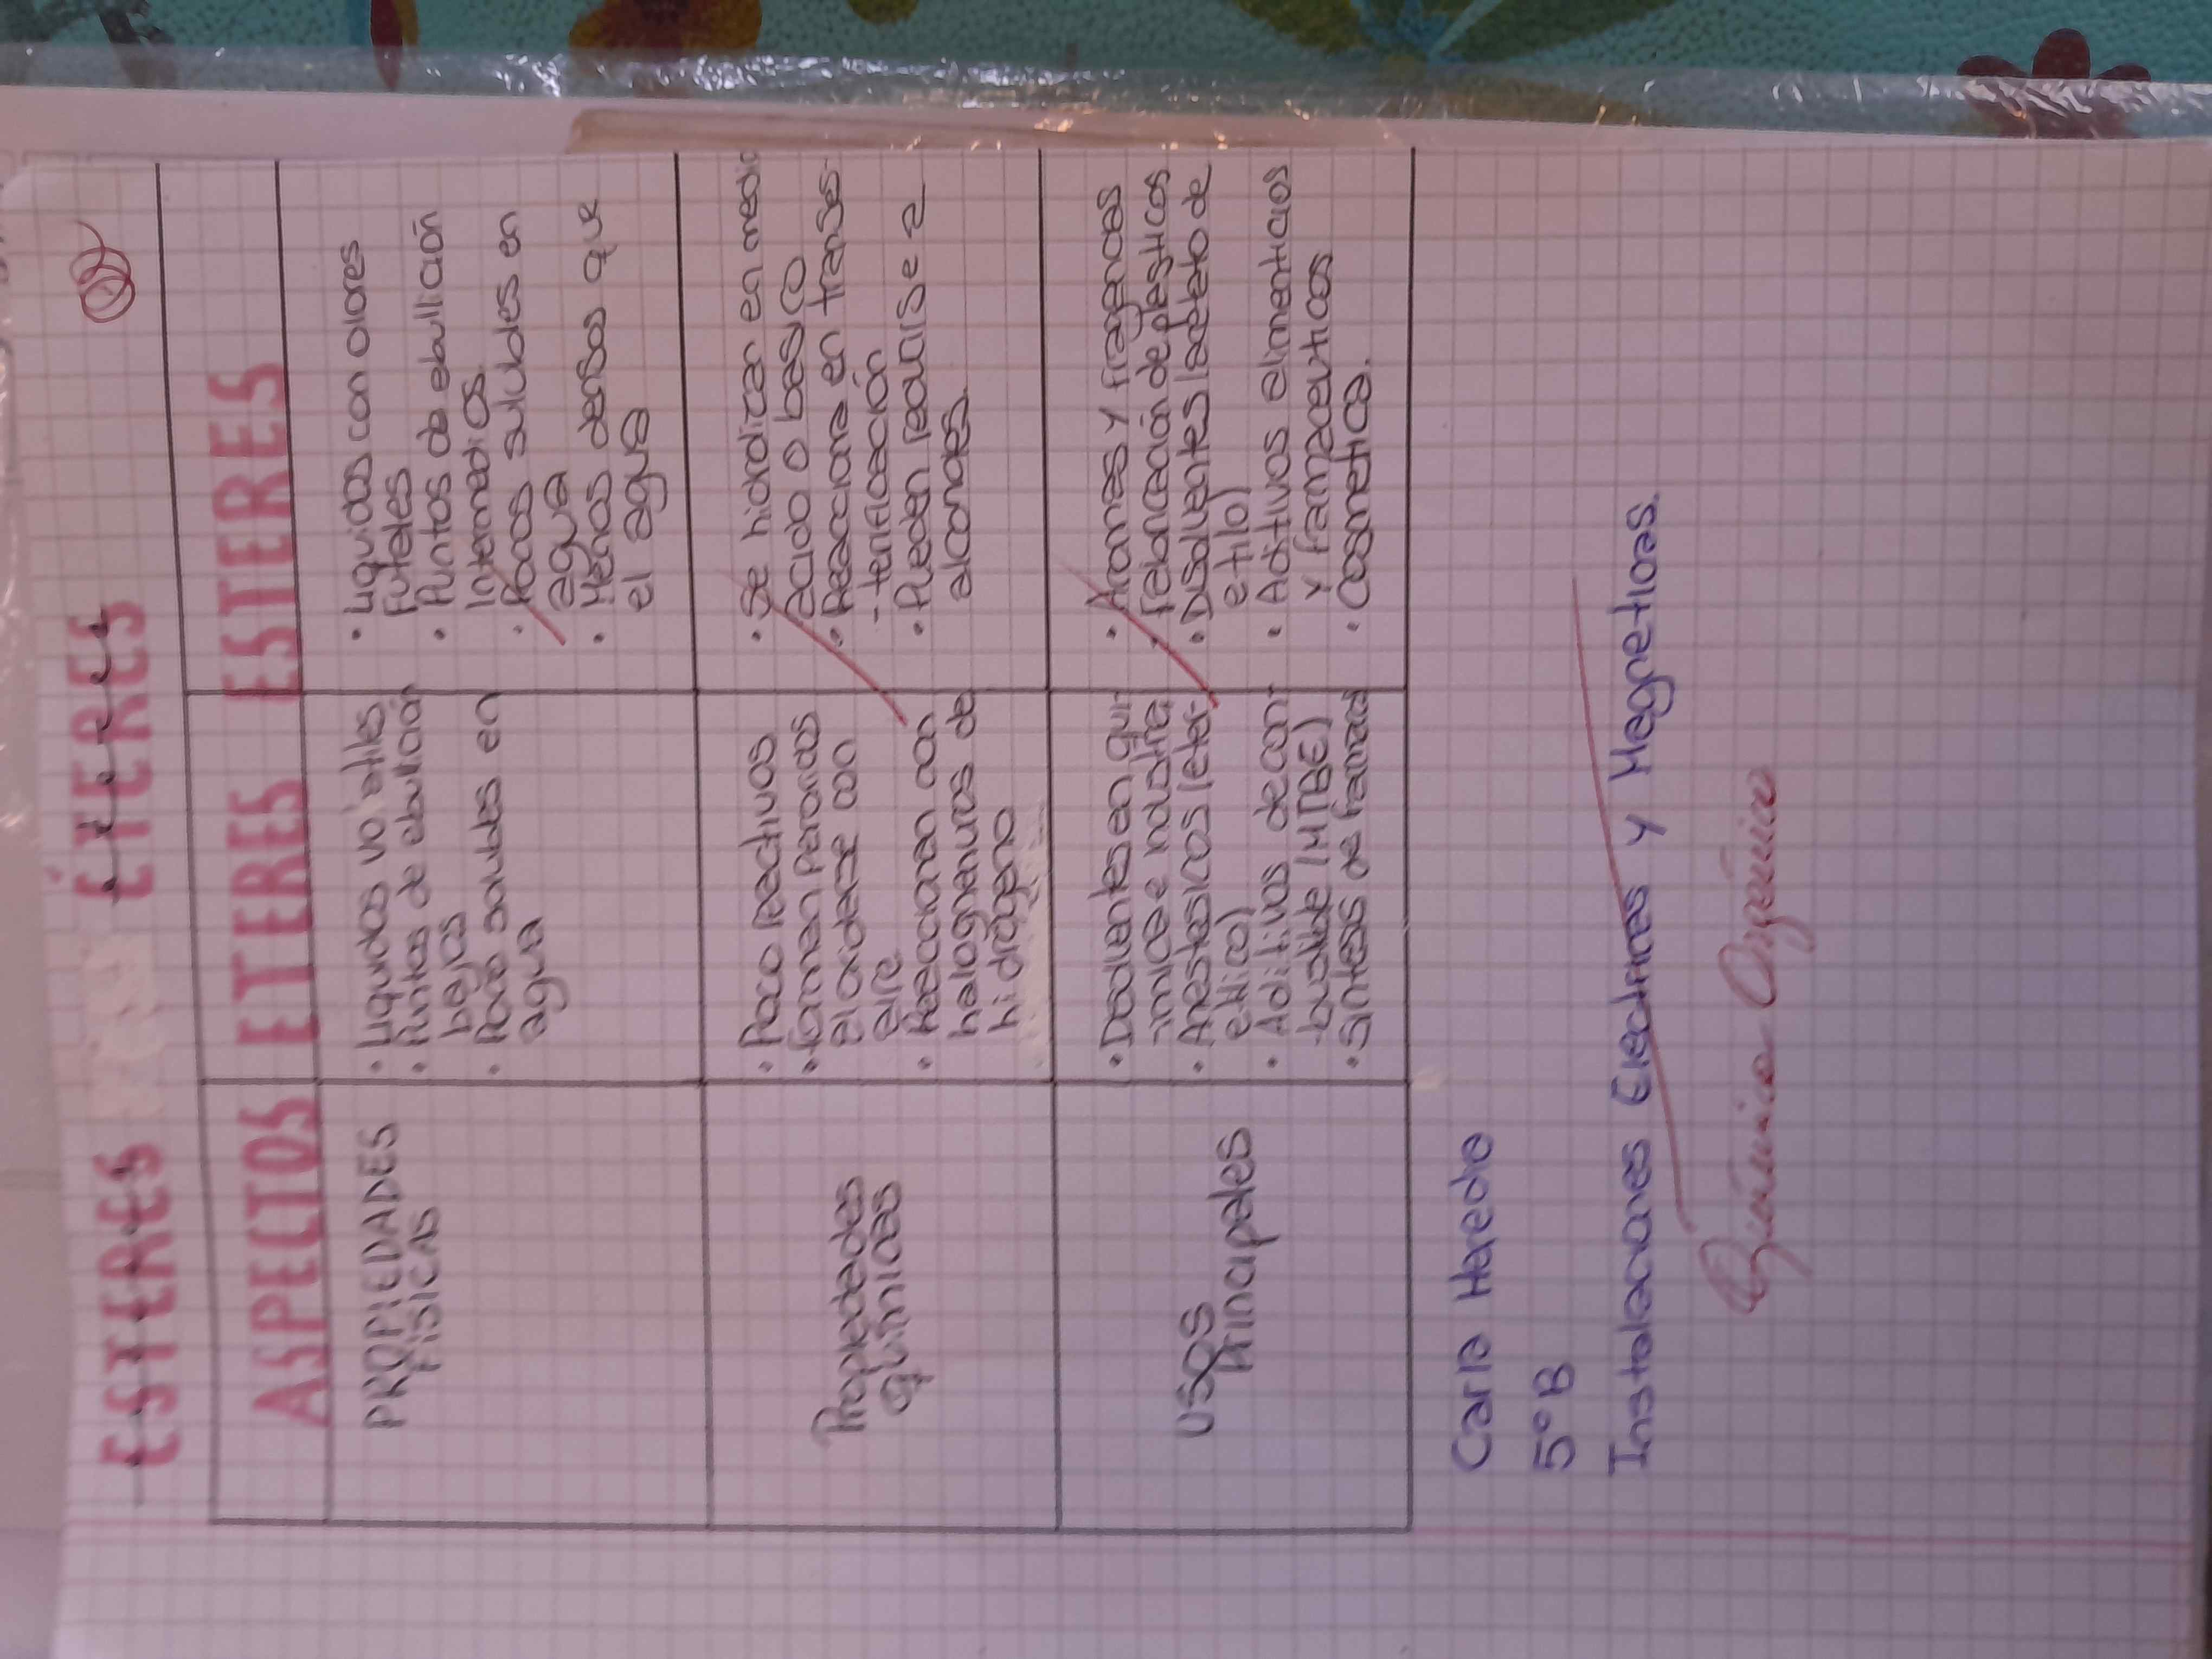 ESTERES ÉTERES
ASPECTOS ETERES ESTERES
PROPIEDADES
FÍSICAS
• Liquidos volatiles
• Puntos de ebullicion
bajos
• Poco solubles en
agua
• Liquidos con olores
Futales
• Puntos de ebullición
Intermedios.
• Pocos sulubles en
agua
• Menos densos que
el agua
Propiedades
químicas
• Poco reactivos
• forman peroxidos
al oxiderse con
aire
• Reaccionan con
halogenuros de
hidrógeno
• Se hidrolizar en medio
acido o basico
• Reacciona en transes-
-terificación
• Pueden reducirse a
alcoholes.
USOS
Principales
• Disolventes en quí-
-imica e industria
• Anestesicos (eter-
etilico)
• Aditivos de com-
-bustible (MTBE)
• Sintesis de
• Aromas y fragancias
• de plasticos
• Disolventes (acetato de
etilo)
• Aditivos alimenticios
y farmaceuticos
• Cosmetica.
Carla Heredia
5°B
Instalaciones Electricas y Magneticas.
Química Orgánica